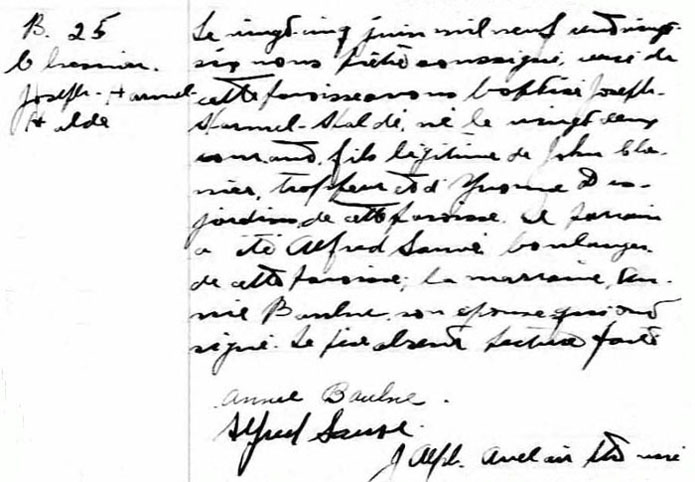 B. 25
Joseph-Harmel
Halde
Le vingt-cinq juin mil neuf cent vingt-
six nous prêtre soussigné, curé de
cette paroisse avons baptisé Joseph-
Harmel-Haldé, né le vingt-deux
courant, fils légitime de John Cha-
nier, trappeur et d'Yvonne Des-
jardins de cette paroisse. Le parrain
a été Alfred Sauvé boulanger
de cette paroisse; la marraine, An-
nie Baulne, son épouse qui ont
signé. Le père absent. Lecture faite
Annie Baulne.
Alfred Sauvé.
J Alph. ptre curé